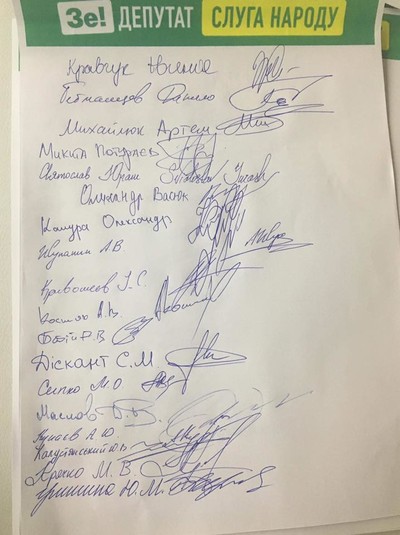 Зе! ДЕПУТАТ СЛУГА НАРОДУ
Кравчук Євгенія
Гетманцев Данило
Михайлюк Артем
Микита Потураєв
Святослав Юраш Sviatoslav Yurash
Олександр Васюк
Качура Олександр
Жупанин А.В
Кривошеєв І.С.
Костюх А.В.
Діскант С.М
Сипко М.О
Маслов Д.В.
Кунаєв А.Ю
Крячко М.В.
Гришина Ю.М.